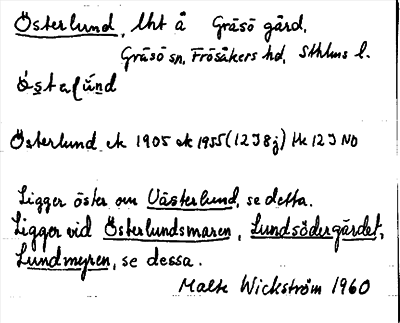 Österlund, lht å Gräsö gård,
Gräsö sn, Frösåkers hd, Sthlms l.
Österlund ek 1905 ek 1955 (12J8j) Hk 12J NO
Ligger öster om Västerlund, se detta.
Ligger vid Österlundsmaren, Lundsödergärdet,
Lundmyren, se dessa.
Malte Wickström 1960